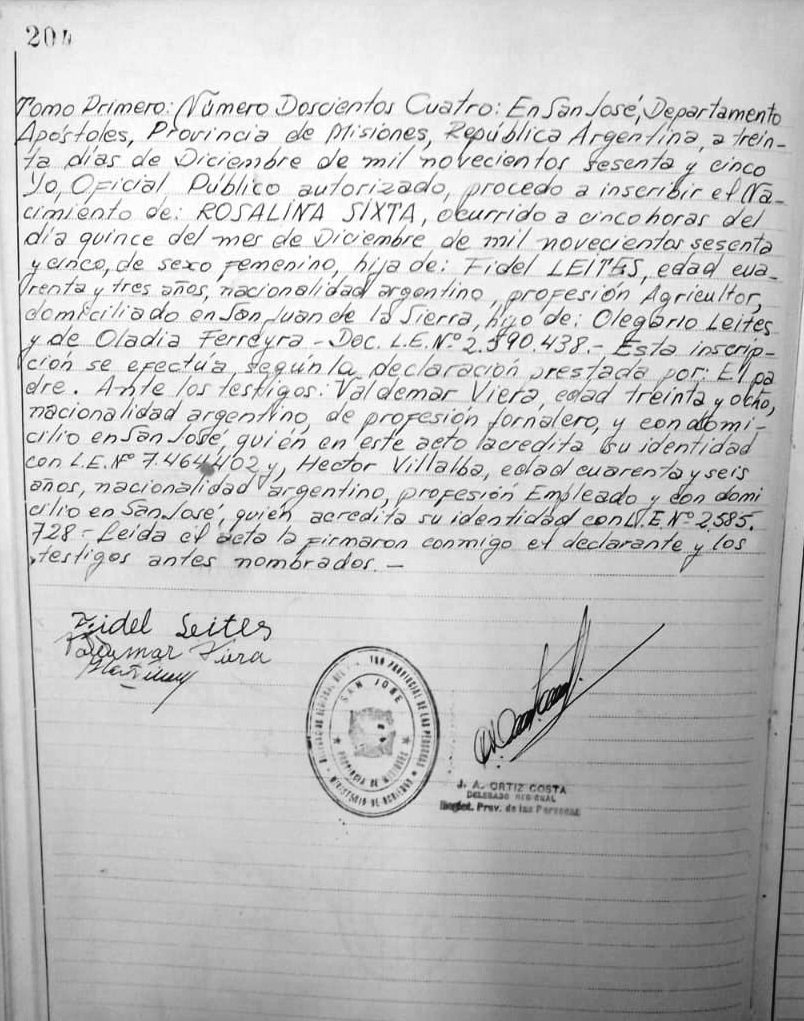 204
Tomo Primero: Número Doscientos Cuatro: En San José, Departamento
Apóstoles, Provincia de Misiones, República Argentina, a trein-
ta días de Diciembre de mil novecientos sesenta y cinco
Yo, Oficial Público autorizado, procedo a inscribir el Na-
cimiento de: ROSALINA SIXTA, ocurrido a cinco horas del
día quince del mes de Diciembre de mil novecientos sesenta
y cinco, de sexo femenino, hija de: Fidel LEITES, edad cua-
renta y tres años, nacionalidad argentino, profesión Agricultor,
domiciliado en San Juan de la Sierra, hijo de: Olegario Leites
y de Oladia Ferreyra - Doc. L.E. Nº 2.590.438.- Esta inscrip-
ción se efectúa, según la declaración prestada por: El pa
dre. Ante los testigos: Valdemar Viera, edad treinta y ocho,
nacionalidad argentino, de profesión jornalero, y con domi-
cilio en San José, quién en este acto acredita su identidad
con L.E. Nº 7.464.402 y, Hector Villalba, edad cuarenta y seis
años, nacionalidad argentino, profesión Empleado y con domi
cilio en San José, quien acredita su identidad con L.E Nº 2.585.
728- Leída el acta la firmaron conmigo el declarante y los
testigos antes nombrados. -
Fidel Leites
Valdemar Viera
SAN JOSE
PROVINCIA DE MISIONES
PROVINCIAL DE LAS PERSONAS
MINISTERIO DE GOBIERNO
J. A. ORTIZ COSTA
DELEGADO REGIONAL
Regist. Prov. de las Personas